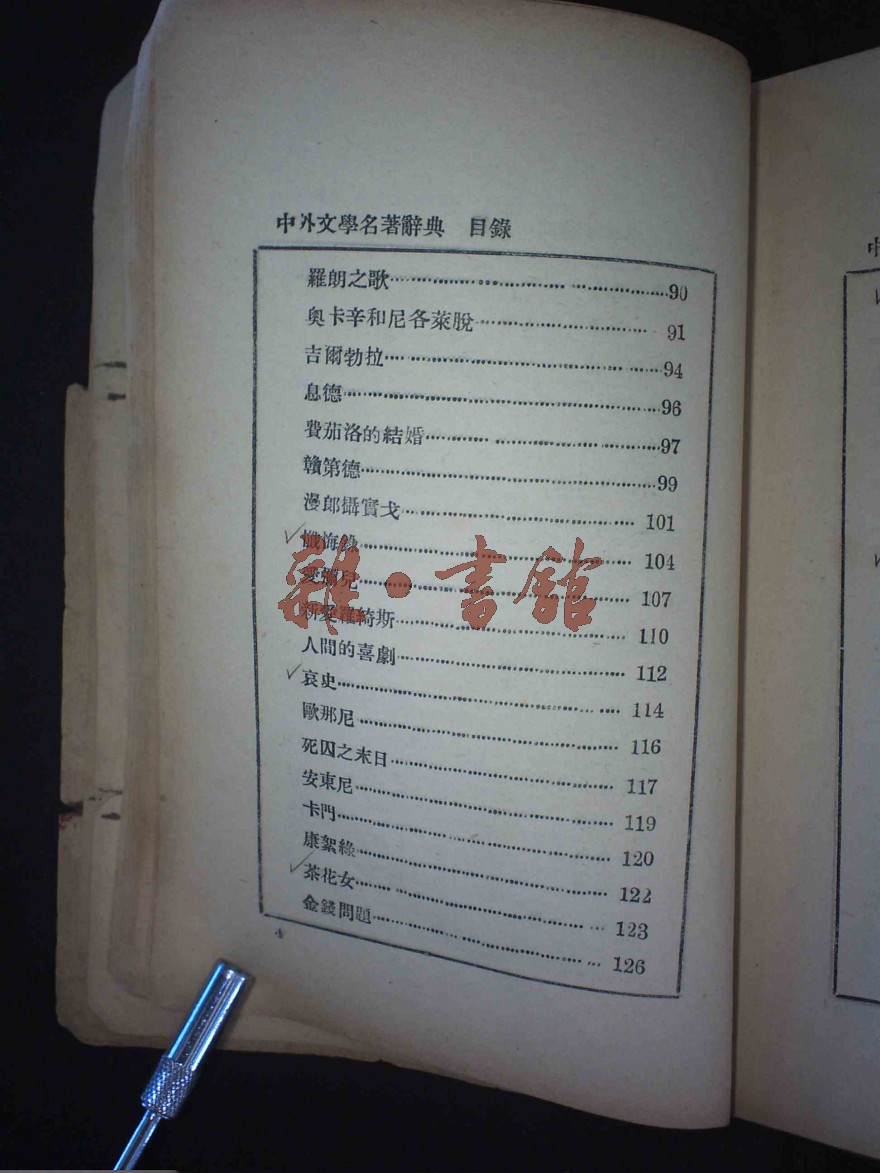 中外文學名著辭典 目錄
羅朗之歌 90
奧卡辛和尼各萊脫 91
吉爾勃拉 94
息德 96
費茄洛的結婚 97
贛第德 99
漫郎攝實戈 101
懺海錄 104
愛彌兒 107
新愛羅綺斯 110
人間的喜劇 112
哀史 114
歐那尼 116
死囚之末日 117
安東尼 119
卡門 120
康絮綠 122
茶花女 123
金錢問題 126
4
雜·書館